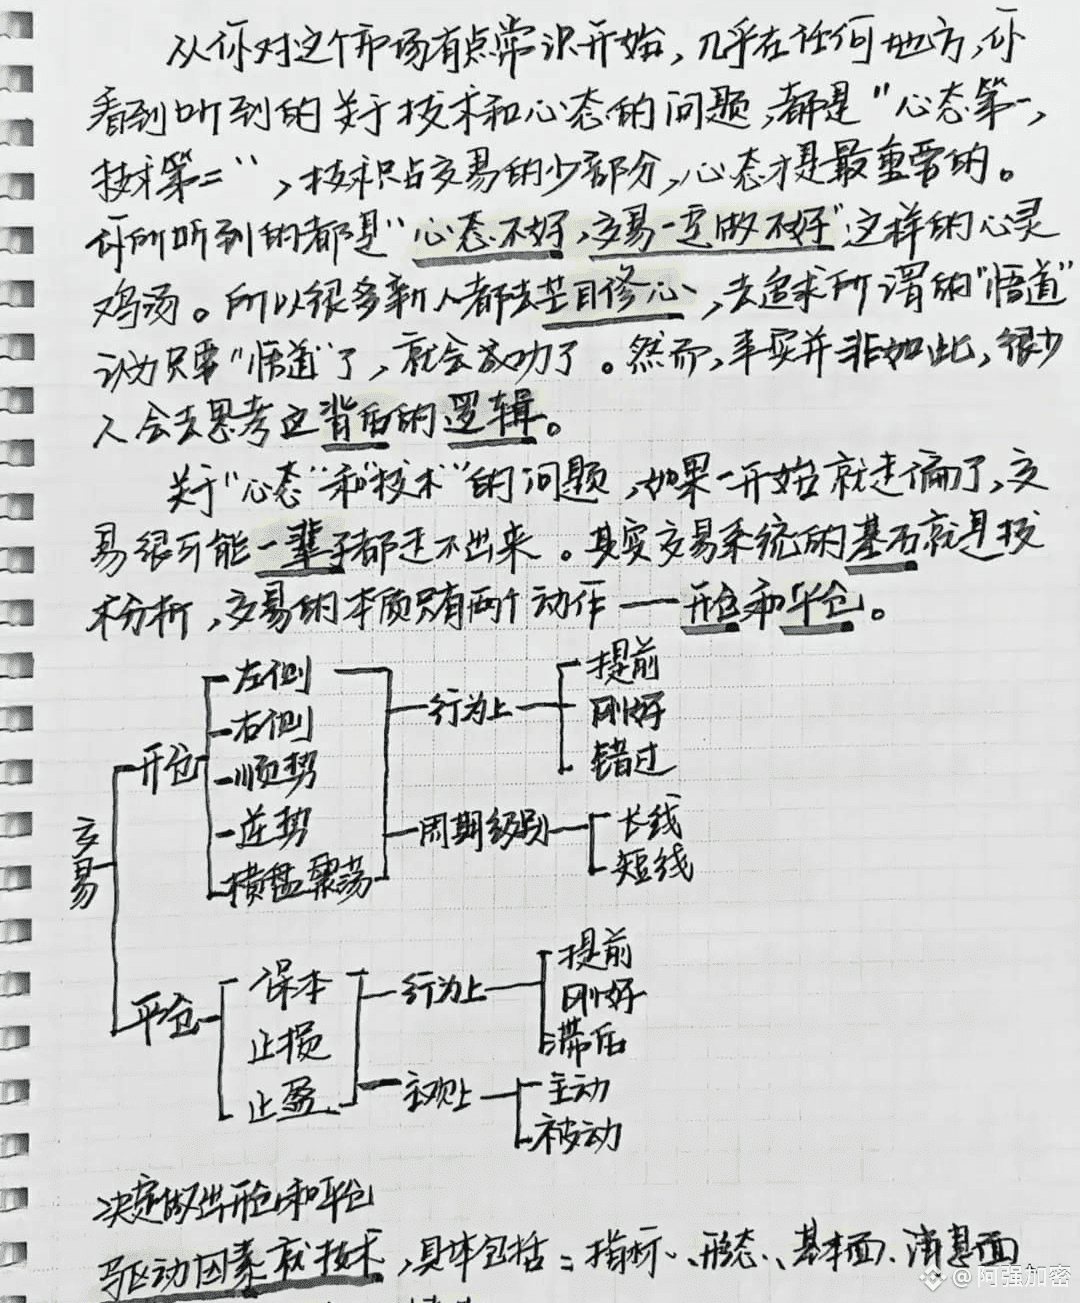 从你对这个市场有点常识开始，几乎在任何地方，你
看到听到的关于技术和心态的问题，都是"心态第一，
技术第二"，技术只占交易的少部分，心态才是最重要的。
你所听到的都是"心态不好，交易一定做不好"这样的心灵
鸡汤。所以很多新人都去盲目修心，去追求所谓的"悟道"
认为只要"悟道"了，就会成功了。然而，事实并非如此，很少
人会去思考这背后的逻辑。
关于"心态"和"技术"的问题，如果一开始就走偏了，交
易很可能一辈子都走不出来。其实交易系统的基石就是技
术分析，交易的本质只有两个动作——开仓和平仓。
交易
开仓
左侧
右侧
顺势
逆势
横盘震荡
行为上
提前
刚好
错过
周期级别
长线
短线
平仓
保本
止损
止盈
行为上
提前
刚好
滞后
主观上
主动
被动
决定做出开仓和平仓
驱动因素就技术，具体包括：指标、形态、基本面、消息面、
@阿强加密